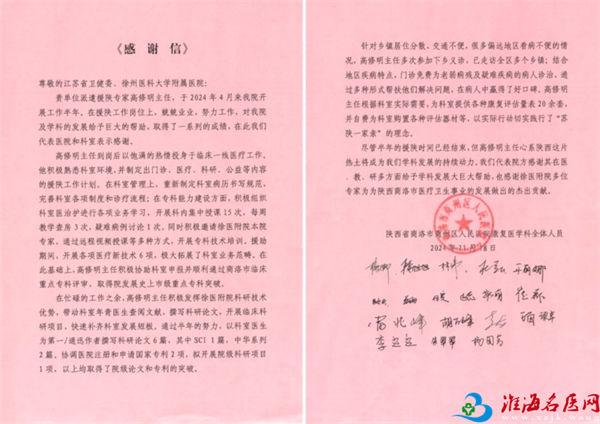 《感 谢 信》
尊敬的江苏省卫健委、徐州医科大学附属医院：
贵单位派遣援陕专家高修明主任，于 2024 年 4 月来我院
开展工作半年，在援陕工作岗位上，兢兢业业，努力工作，对我院
及学科的发展给予巨大的帮助，取得了一系列的成绩，在此我们
代表医院和科室表示感谢。
高修明主任到岗后以他满的热情投身于临床一线医疗工作，
他积极熟悉科室环境，并制定出门诊、医疗、科研、公益等内容
的援陕工作计划。在科室管理上，重新制定科室病历书写规范，
完善科室各项制度及诊疗流程；在专科能力建设方面，积极组织
科室医治护进行各项业务学习，开展科内集中授课 15 次，每周
教学查房 3 次，疑难病例讨论 1 次，同时积极邀请徐医附院本院
专家，通过远程视频授课等多种方式，开展专科技术培训，援助
期间，开展各项医疗新技术 6 项，极大拓展了科室业务范畴。在
此基础上，高修明主任积极协助科室申报并顺利通过商洛市临床
重点专科评审，取得院发展史上市级重点专科突破。
在忙碌的工作之余，高修明主任积极发挥徐医附院科研技术
优势，带动科室年青医生查阅文献、撰写科研论文，开展临床科
研项目，快速补齐科室发展短板，通过半年的努力，以科室医生
为第一/通迅作者撰写科研论文 6 篇，其中 SCI 1 篇，中华系列
2 篇，协调医院注册和申请国家专利 2 项，拟开展院级科研项目
1 项，以上均取得了院级论文和专利的突破。
针对乡镇居住分散、交通不便，很多偏远地区看病不便的情
况，高修明主任多次参加下乡义诊，已走访全区多个乡镇；结合
地区疾病特点，门诊免费为老弱病残及疑难疾病的病人诊治，通
过多种形式帮扶他们解决问题，在病人中赢得了好口碑，高修明主
任根据科室实际需要，为科室提供各种康复评估量表 20 余套，
并自费为科室购置各种评估器材等，以实际行动切实践行了“苏
陕一家亲”的理念。
尽管半年的援陕时间已经结束，但高修明主任心系陕西这片
热土将成为我们学科发展的持续动力，我们代表院方感谢其在医
、教、研多方面给于学科发展大巨大帮助，也感谢徐医附院多位专
家为为陕西商洛市医疗卫生事业的发展做出的杰出贡献。
陕西省商洛市商州区人民医院康复医学科全体人员
2024.11.18日
淮海名医网